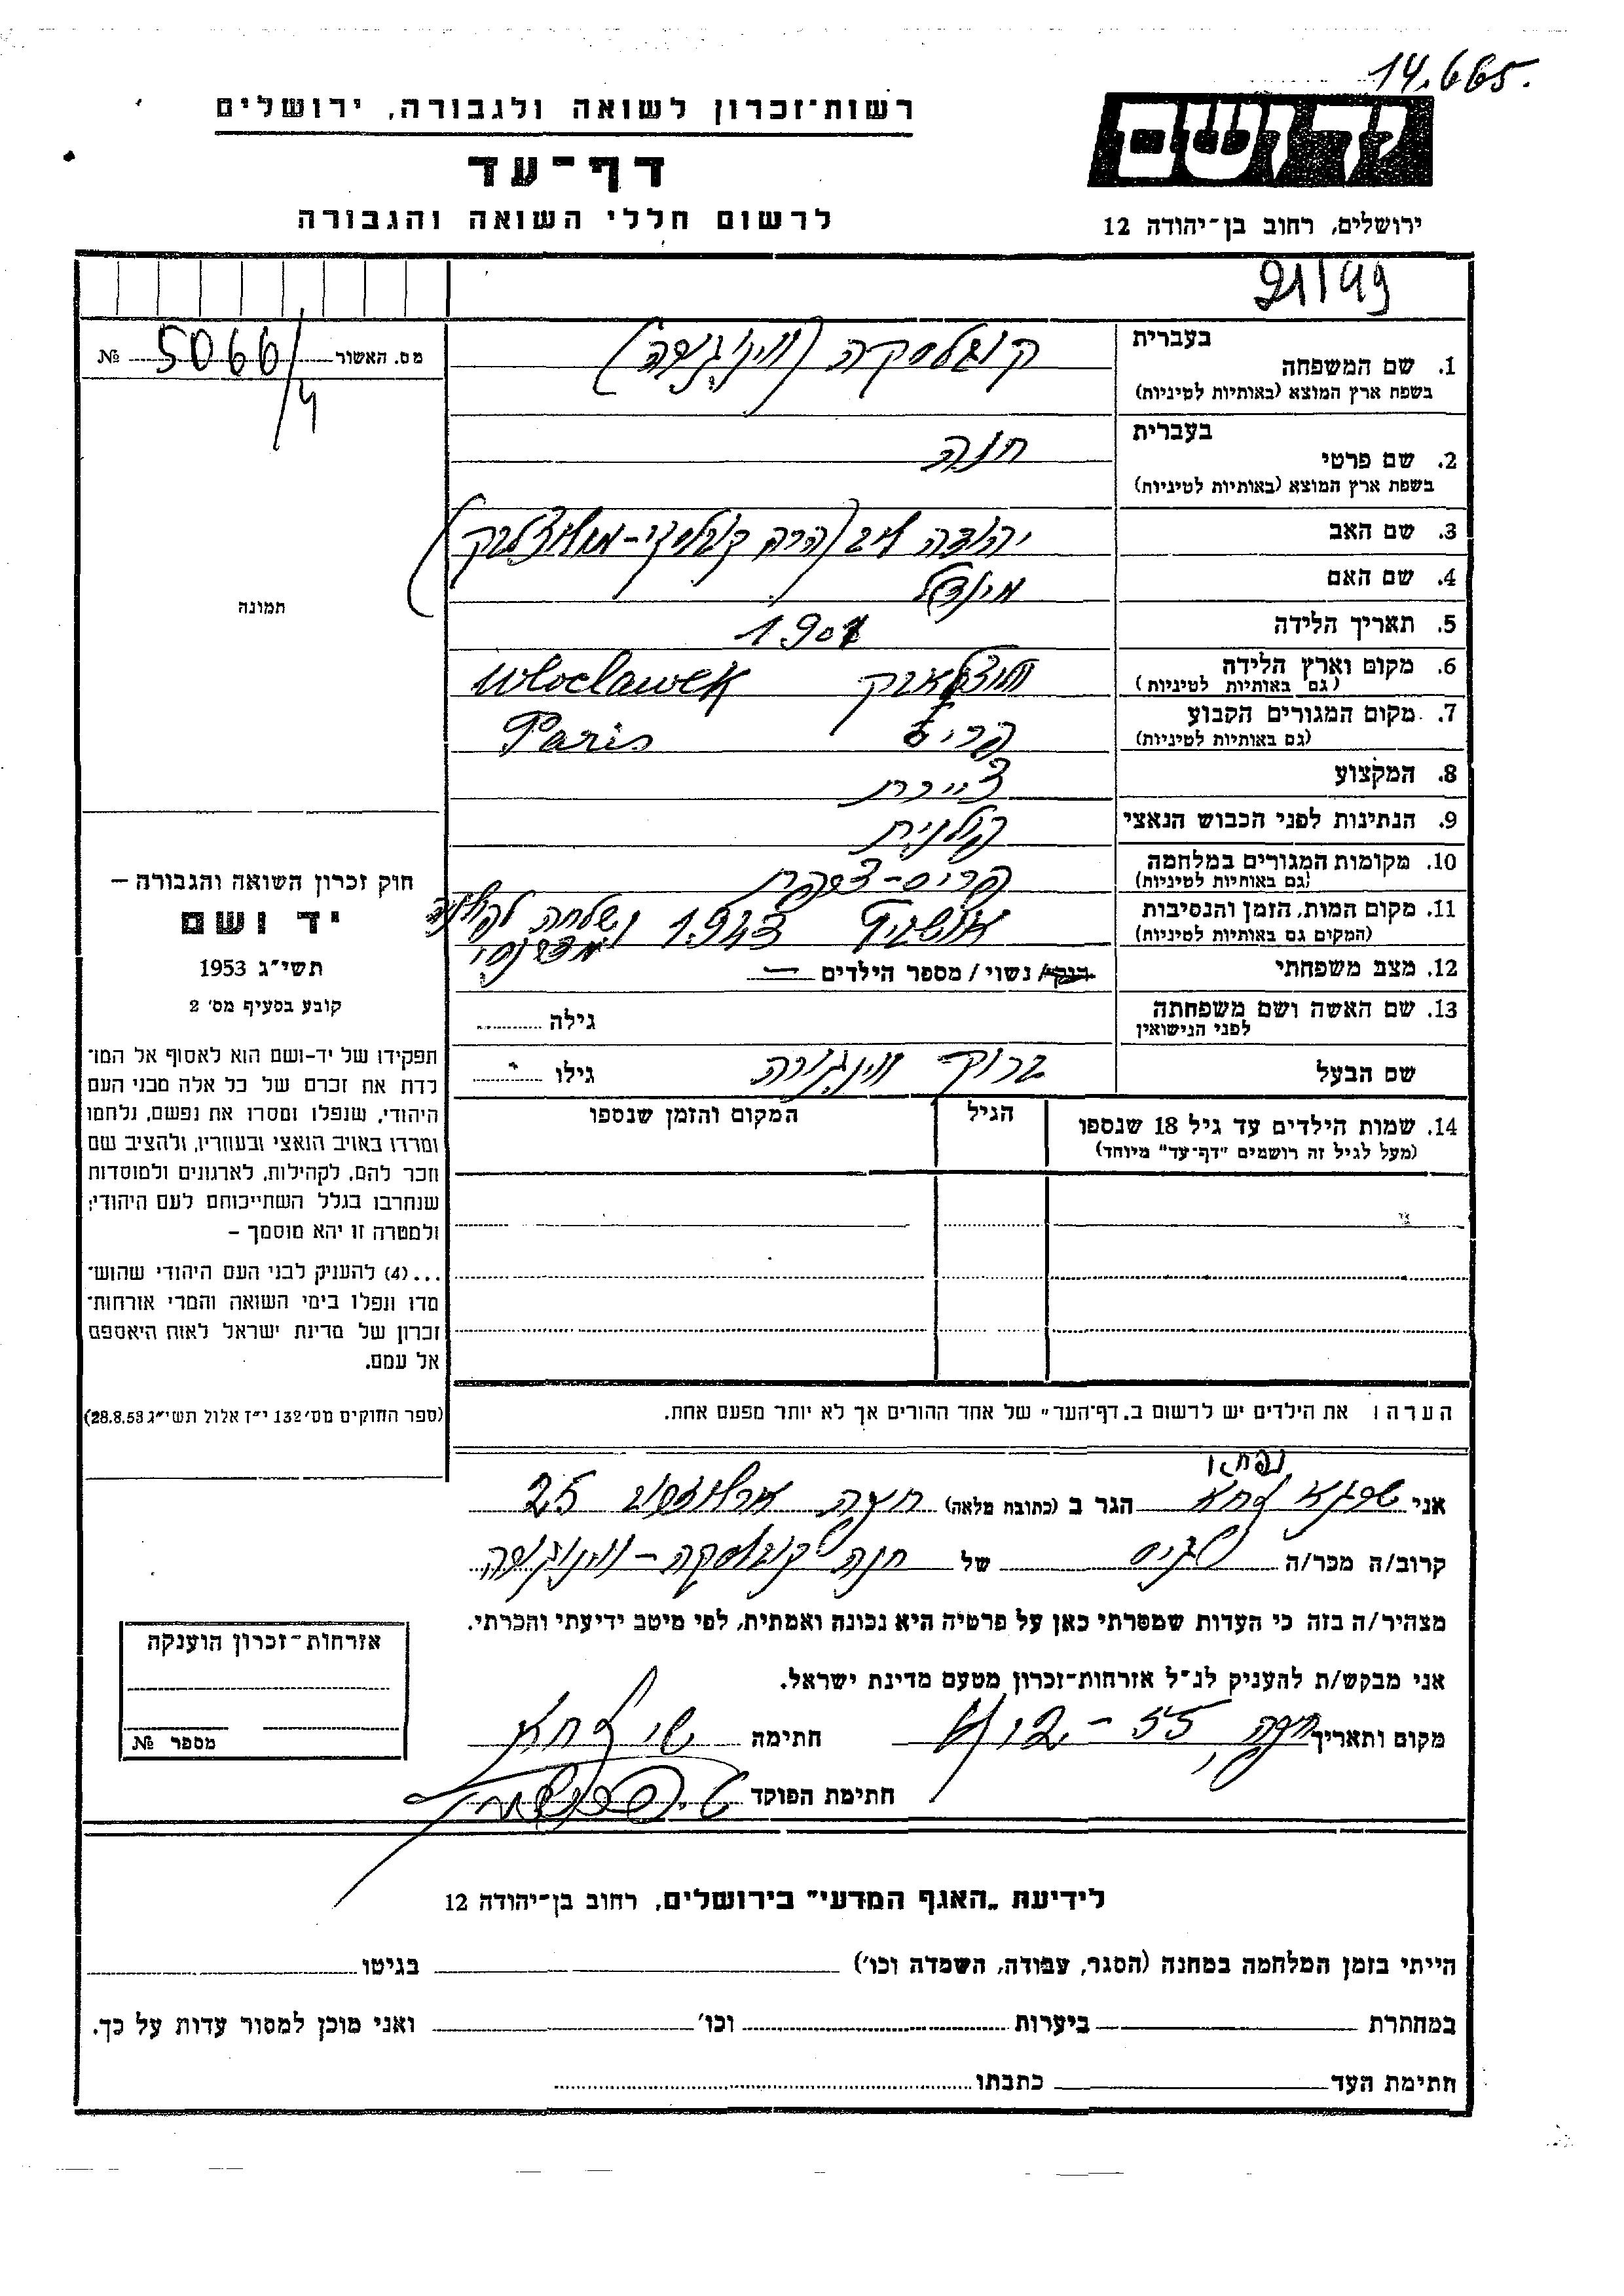 14.665.
רשות־זכרון לשואה ולגבורה, ירושלים
דף־עד
לרשום חללי השואה והגבורה
יד ושם
ירושלים, רחוב בן־יהודה 12
מס. האשור 5066/ №
בעברית
1. שם המשפחה
בשפת ארץ המוצא (באותיות לטיניות)
קובלסקה
בעברית
2. שם פרטי
בשפת ארץ המוצא (באותיות לטיניות)
חנה
3. שם האב יהודה ליב (הרב
4. שם האם מינדל
5. תאריך הלידה
6. מקום וארץ הלידה
(גם באותיות לטיניות)
Wloclawek
7. מקום המגורים הקבוע
(גם באותיות לטיניות)
פריז Paris
8. המקצוע ציירת
9. הנתינות לפני הכבוש הנאצי פולנית
10. מקומות המגורים במלחמה
(גם באותיות לטיניות)
פריס-צרפת
11. מקום המות, הזמן והנסיבות
(המקום גם באותיות לטיניות)
1943 נשלחה
12. מצב משפחתי
רוק/ נשוי / מספר הילדים —
13. שם האשה ושם משפחתה
לפני הנישואין
גילה
שם הבעל ברוך
גילו
14. שמות הילדים עד גיל 18 שנספו
(מעל לגיל זה רושמים "דף־עד" מיוחד)
הגיל
המקום והזמן שנספו
תמונה
חוק זכרון השואה והגבורה –
יד ושם
תשי״ג 1953
קובע בסעיף מס׳ 2
תפקידו של יד-ושם הוא לאסוף אל המו־
לדת את זכרם של כל אלה מבני העם
היהודי, שנפלו ומסרו את נפשם, נלחמו
ומרדו באויב הנאצי ובעוזריו, ולהציב שם
וזכר להם, לקהילות, לארגונים ולמוסדות
שנחרבו בגלל השתייכותם לעם היהודי;
ולמטרה זו יהא מוסמך –
...(4) להעניק לבני העם היהודי שהוש־
מדו ונפלו בימי השואה והמרי אזרחות־
זכרון של מדינת ישראל לאות היאספם
אל עמם.
(ספר החוקים מס׳ 132 י״ז אלול תשי״ג 28.8.53)
הערה ו את הילדים יש לרשום ב„דף־העד" של אחד ההורים אך לא יותר מפעם אחת.
אני
הגר ב (כתובת מלאה) חיפה 25
קרוב/ה מכר/ה גיס של חנה קובלסקה-
מצהיר/ה בזה כי העדות שמסרתי כאן על פרטיה היא נכונה ואמתית, לפי מיטב ידיעתי והכרתי.
אני מבקש/ת להעניק לנ״ל אזרחות־זכרון מטעם מדינת ישראל.
מקום ותאריך חיפה,
חתימה
חתימת הפוקד
אזרחות־זכרון הוענקה
מספר №
לידיעת „האגף המדעי" בירושלים, רחוב בן־יהודה 12
הייתי בזמן המלחמה במחנה (הסגר, עבודה, השמדה וכו׳) בגיטו
במחתרת ביערות וכו׳ ואני מוכן למסור עדות על כך.
חתימת העד כתבתו